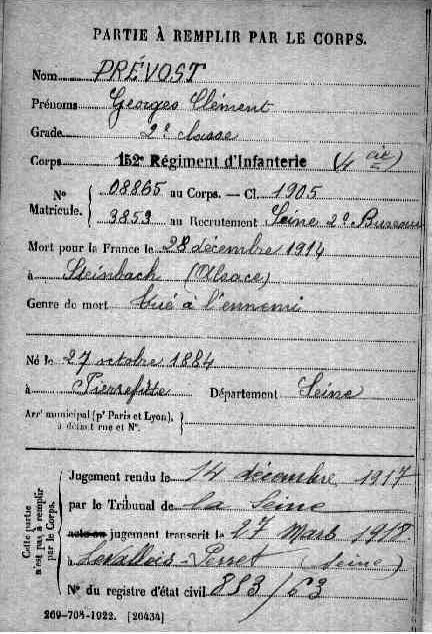 PARTIE À REMPLIR PAR LE CORPS.
Nom PRÉVOST
Prénoms Georges Clément
Grade 2e classe
Corps 152e Régiment d'Infanterie (4 cie)
No Matricule. 08865 au Corps. — Cl. 1905
3853 au Recrutement Seine 2e Bureau
Mort pour la France le 28 décembre 1914
à Steinbach (Alsace)
Genre de mort tué à l'ennemi
Né le 27 octobre 1884
à Pierrefitte Département Seine
Arrt municipal (pr Paris et Lyon),
à défaut rue et No.
Cette partie
n'est pas à remplir
par le Corps.
Jugement rendu le 14 décembre 1917
par le Tribunal de la Seine
acte ou jugement transcrit le 27 mars 1918.
à Levallois-Perret (Seine)
No du registre d'état civil 883/63
269-708-1922. [26434]